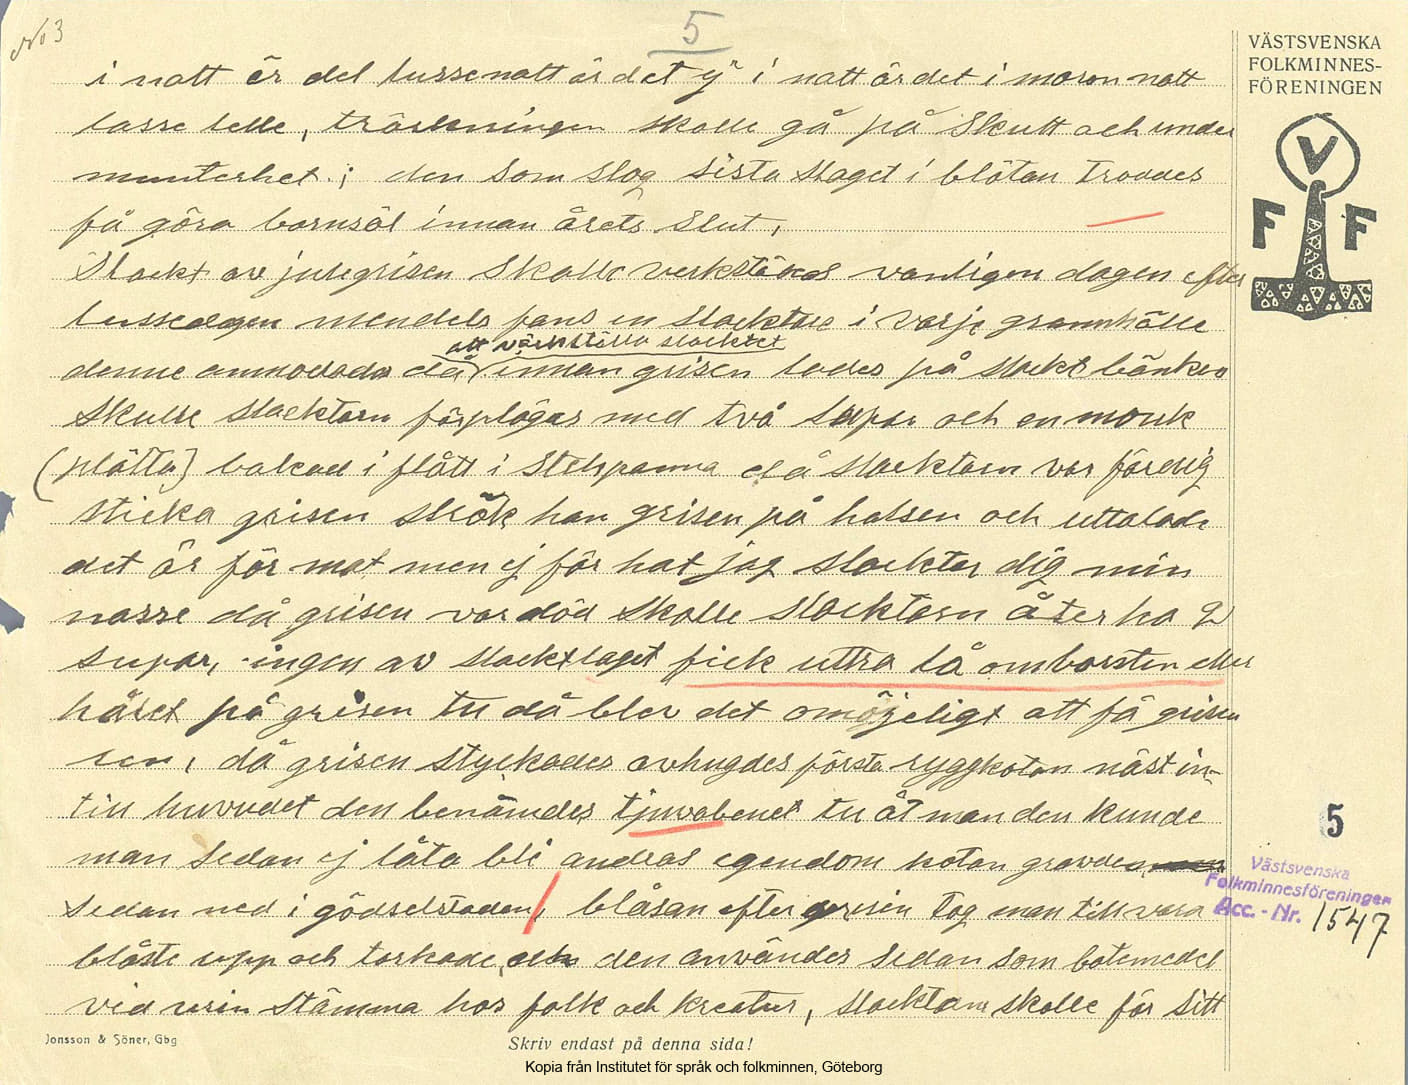 No 3
5
VÄSTSVENSKA
FOLKMINNES-
FÖRENINGEN
V
F F
i natt är det lussenatt är det ej i natt är det i moron natt
lusse lelle, tröskningen skolle gå på skutt och under
munterhet; den som slog sista slaget i blötan troddes
få göra barnsöl innan årets slut,
Slackt av julegrisen skolle verkställas vanligen dagen efter
lussedagen mendels fans en slacktare i varje grannhålle
att värkställa slacktet
denne anmodades då innan grisen lades på slacktbänken
skulle slacktarn förplägas med två supar och en monk
(plätta) bakad i flått i stekpanna då slacktarn var färdig
sticka grisen strök han grisen på halsen och uttalade
det är för mat men ej för hat jag slacktar dig min
nasse då grisen var död skolle slacktarn åter ha 2
supar, ingen av slacktlaget fick uttra tå om borsten eller
håret på grisen tu då blev det omöjeligt att få grisen
ren, då grisen styckades avhugdes första ryggkotan näst in-
till huvudet den benämdes tjuvabenet tu åt man den kunde
man sedan ej låta bli andras egendom kotan gravdes
sedan ned i gödselstaden, blåsan efter grisen tog man till vara
blåste upp och torkade, och den användes sedan som botemedel
vid urin stämma hos folk och kreatur, slacktarn skolle för sitt
5
Västsvenska
Folkminnesföreningen
Acc. - Nr. 1547
Jonsson & Söner, Gbg
Skriv endast på denna sida!
Kopia från Institutet för språk och folkminnen, Göteborg